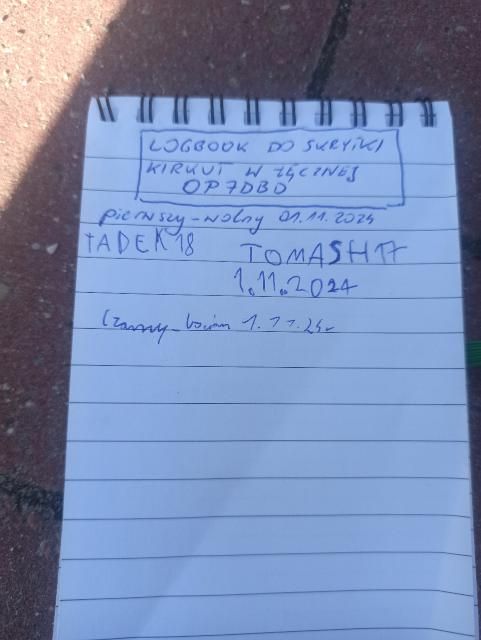 LOGBOOK DO SKRYTKI
KIRKUT W ŁĘCZNEJ
OP7DBD
pierwszy-wolny 01.11.2024
TADEK18 TOMASH17
1.11.2024
Czarny_bocian 1.11.24r